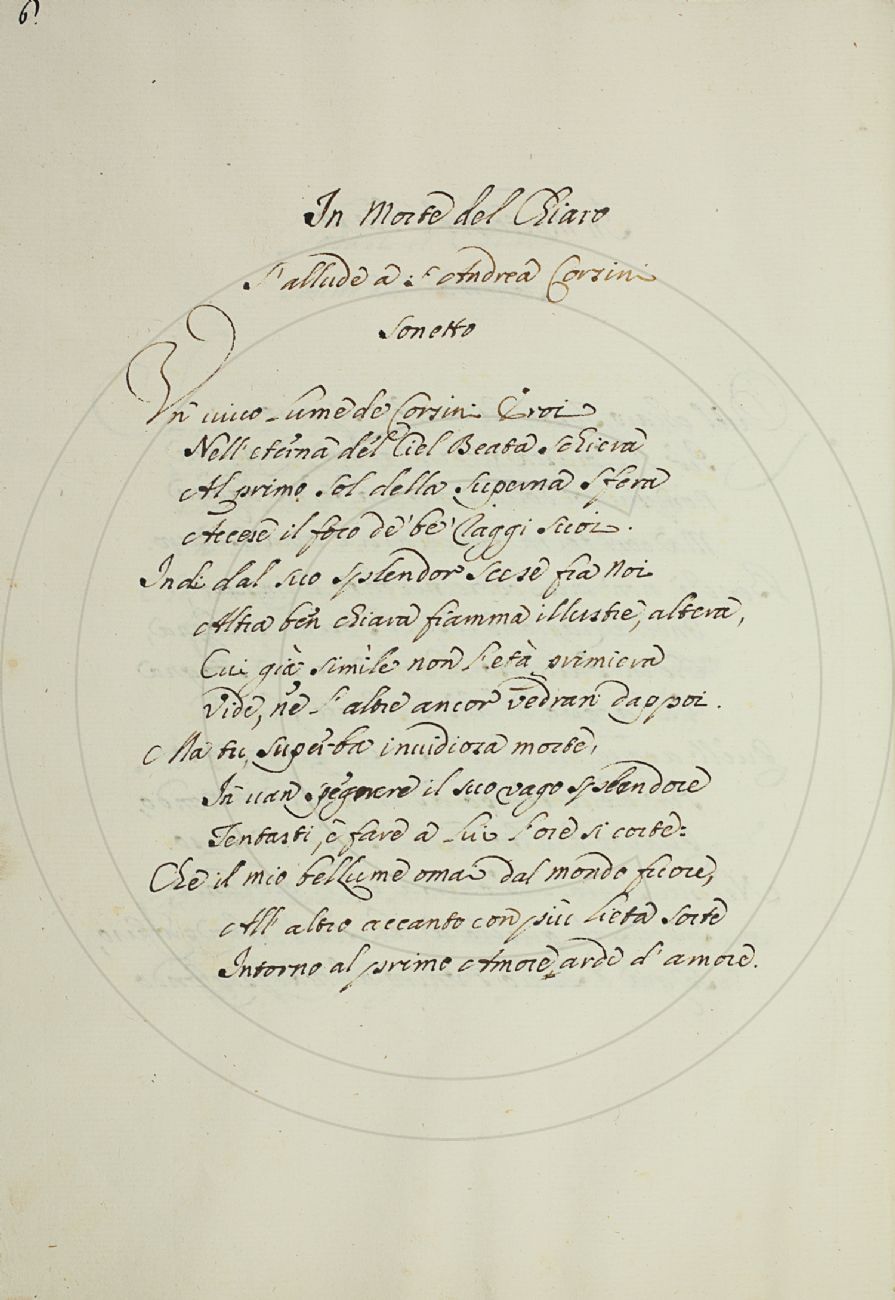 6
In Morte del Chiaro
S'allude a S. Andrea Corsini
Sonetto
Un vivo lume de Corsini Eroi
Nell'eterna del Ciel Beata schiera
Al primo Sol della superna sfera
Accese il foco de' be' raggi suoi.
Indi dal suo splendor scese fra noi
Altra ben chiara fiamma illustre, altera,
Cui già simile non l'età primiera
Vide, ne l'altre ancor vedran dappoi.
Ma tu, superba invidiosa morte,
In van spegnere il suo vago splendore
Tentasti, e fare a lui l'ore si corte:
Che il mio bel lume omai dal mondo fuore,
All'altro accanto con più lieta sorte
Intorno al primo Amore, arde d'amore.